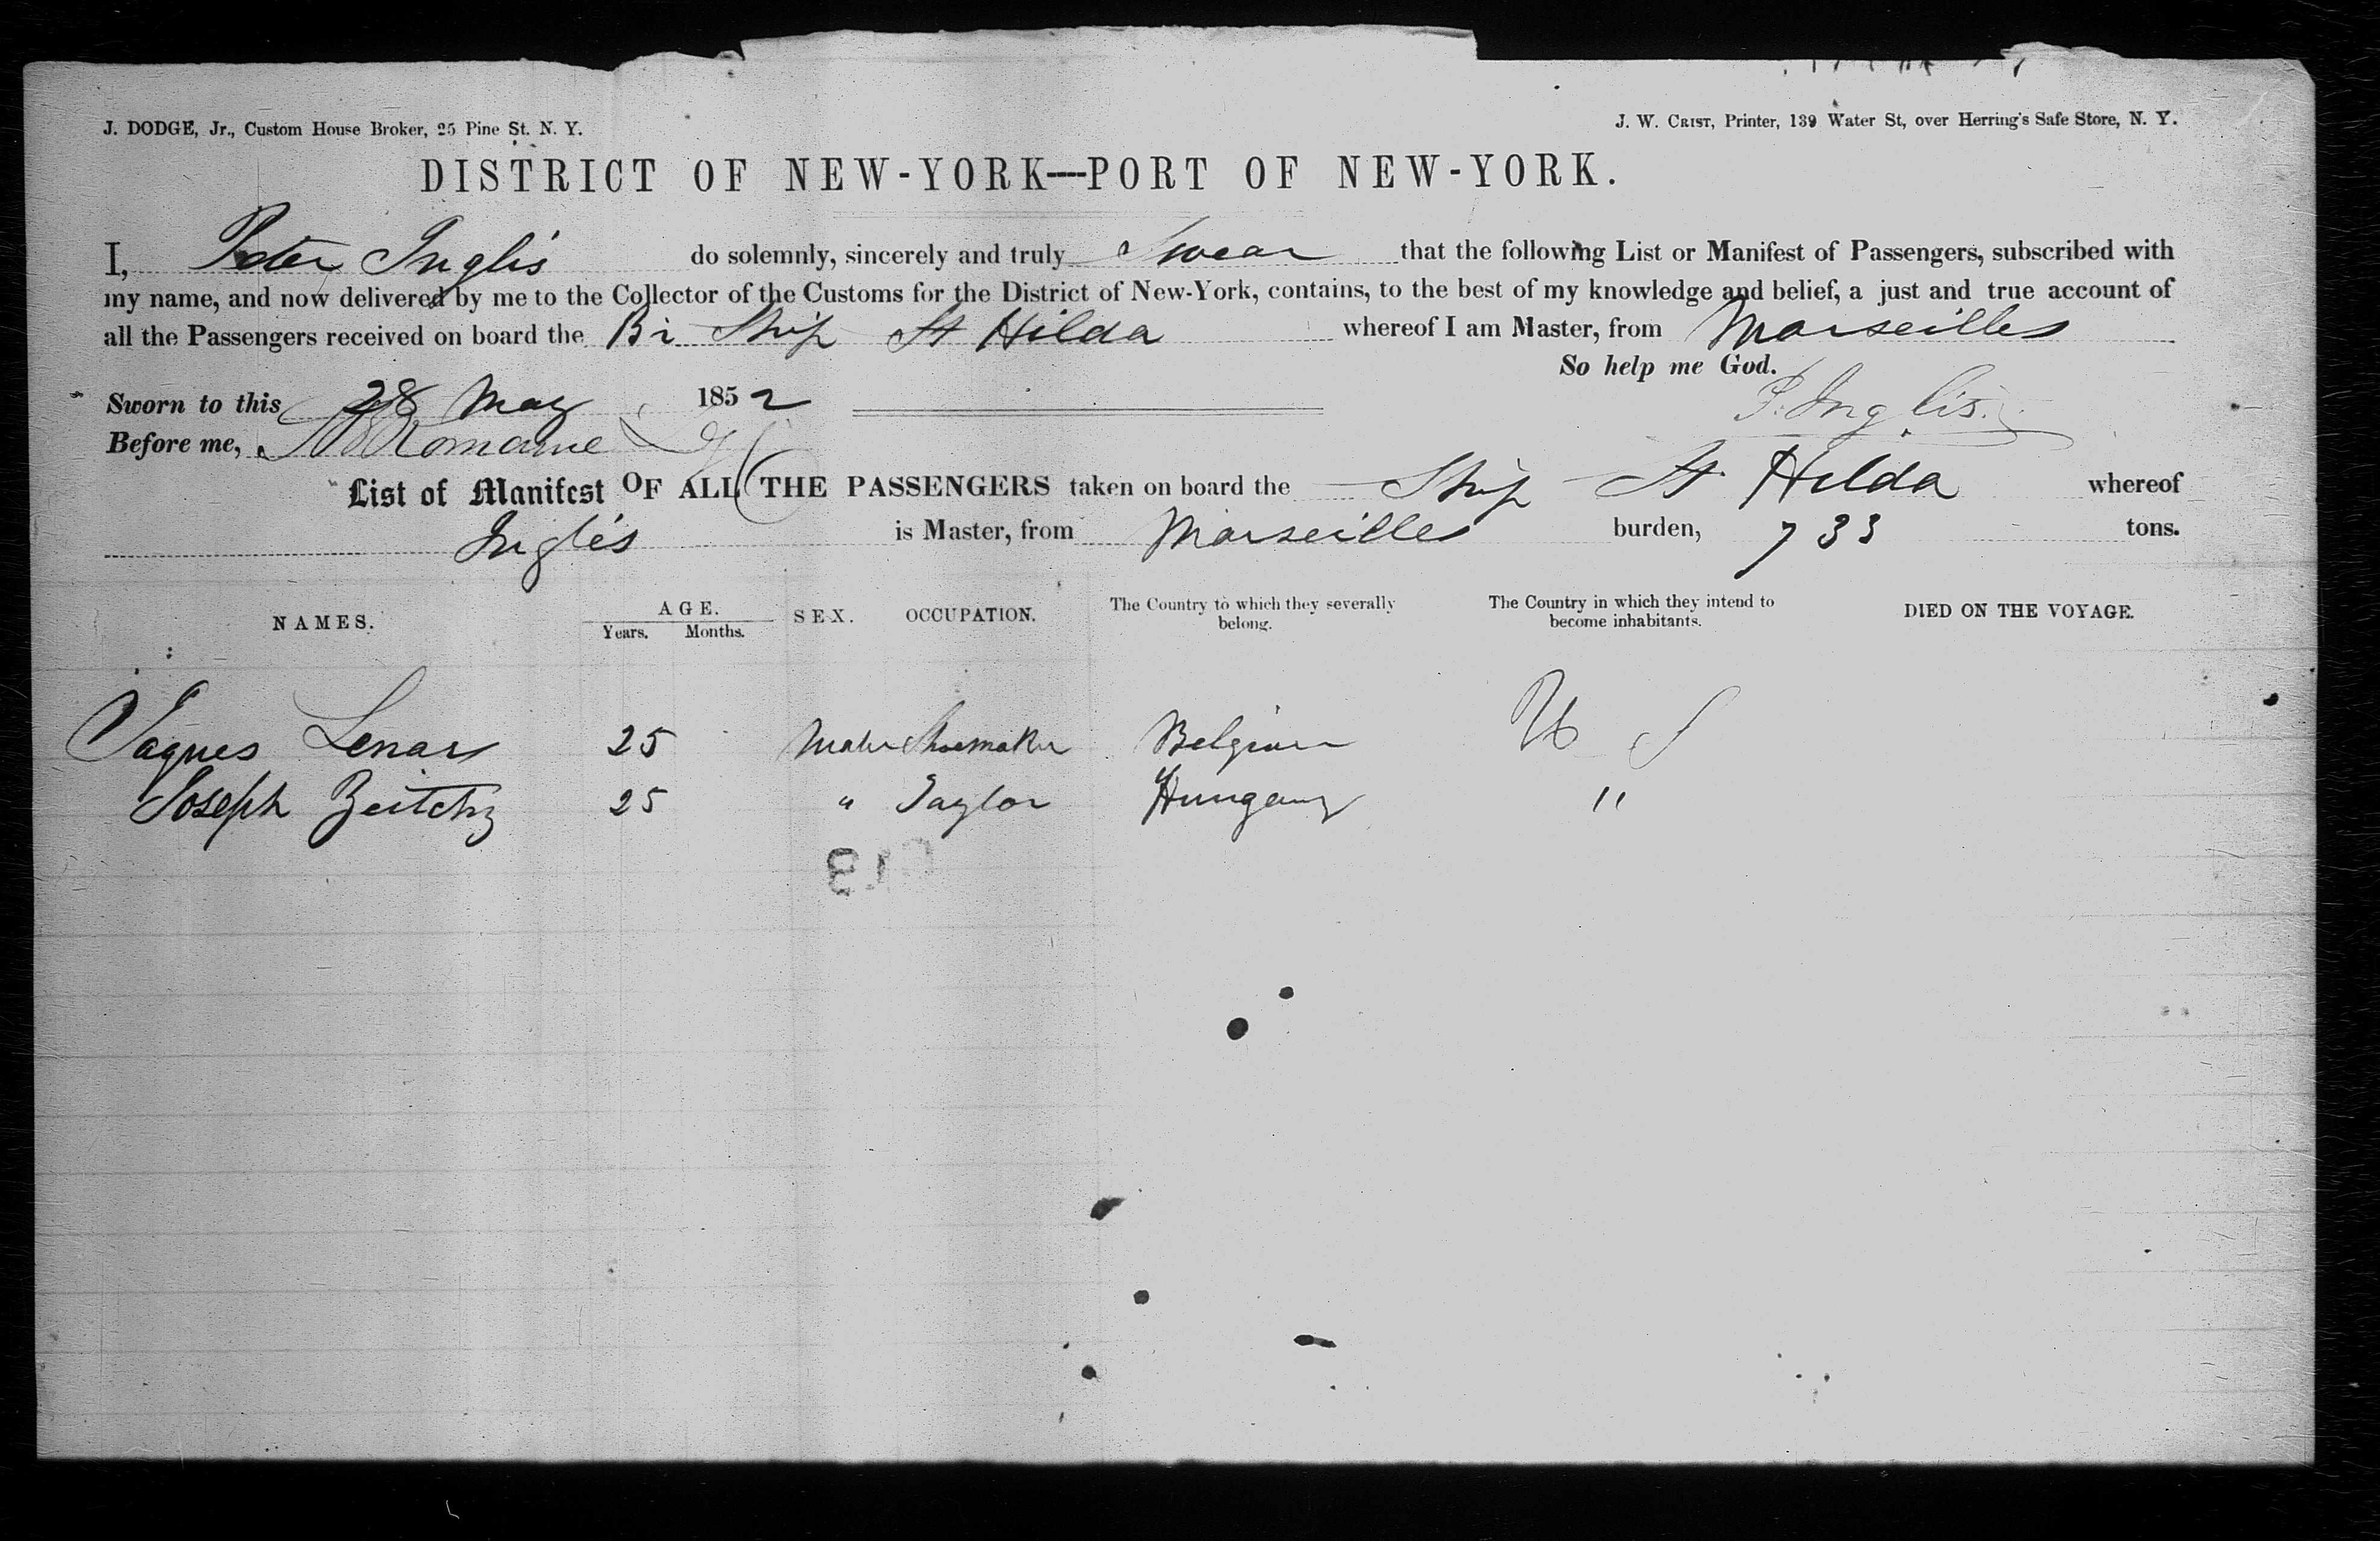 J. DODGE, Jr., Custom House Broker, 25 Pine St. N. Y.
J. W. CRIST, Printer, 139 Water St, over Herring's Safe Store, N. Y.
DISTRICT OF NEW-YORK—PORT OF NEW-YORK.
I, Peter Inglis do solemnly, sincerely and truly Swear that the following List or Manifest of Passengers, subscribed with
my name, and now delivered by me to the Collector of the Customs for the District of New-York, contains, to the best of my knowledge and belief, a just and true account of
all the Passengers received on board the Br Ship St Hilda whereof I am Master, from Marseilles
So help me God.
Sworn to this 28 May 1852
P. Inglis.
Before me, Romaine
List of Manifest OF ALL THE PASSENGERS taken on board the Ship St Hilda whereof
Inglis is Master, from Marseilles burden, 733 tons.
NAMES. AGE. Years. Months. SEX. OCCUPATION. The Country to which they severally belong. The Country in which they intend to become inhabitants. DIED ON THE VOYAGE.
Jaques Lenars 25 Male Shoemaker Belgium U S
Joseph Zeitchy 25 " Taylor Hungary "